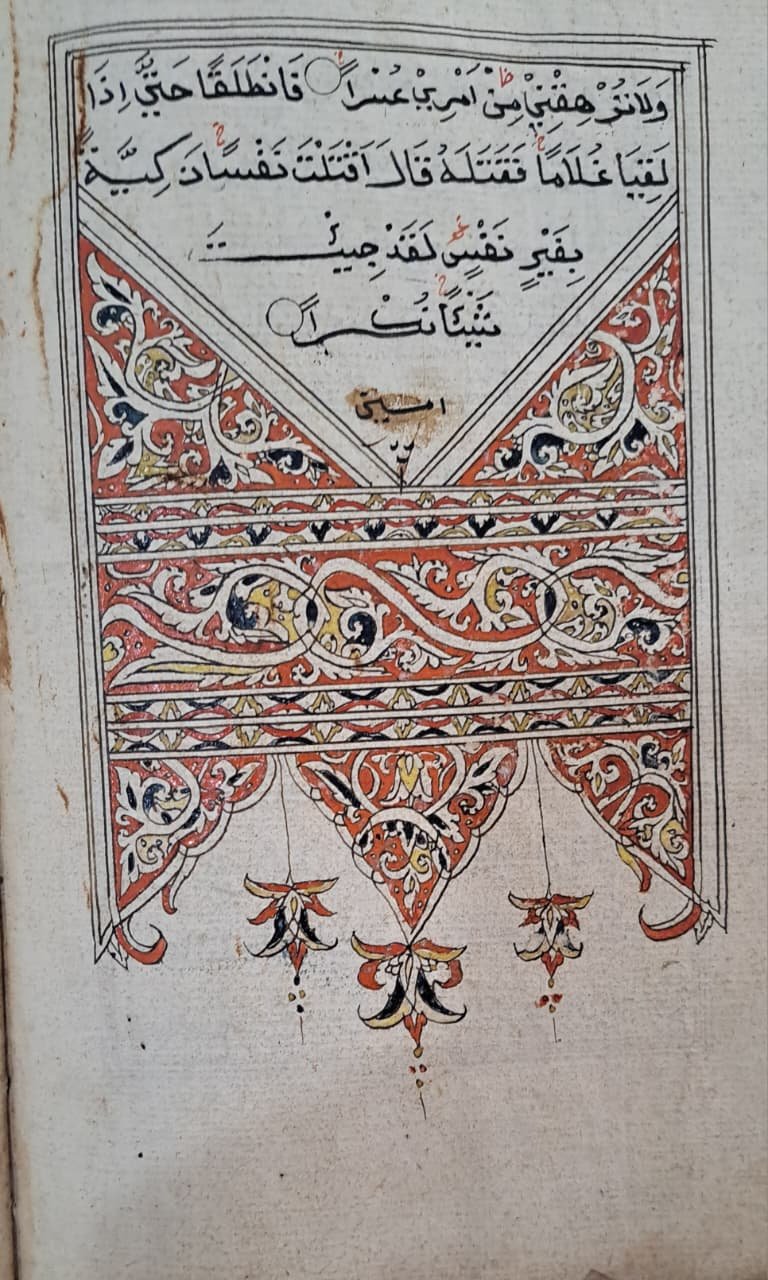 وَلَا تُرْهِقْنِيْ مِنْ اَمْرِيْ عُسْرًا ○ فَانْطَلَقَا حَتَّيٰ اِذَا
لَقِيَا غُلَامًا فَقَتَلَهُ قَالَ اَقَتَلْتَ نَفْسًا زَكِيَّةً
بِغَيْرِ نَفْسٍ لَقَدْ جِيئْتَ
شَيْئًا نُكْرًا ○